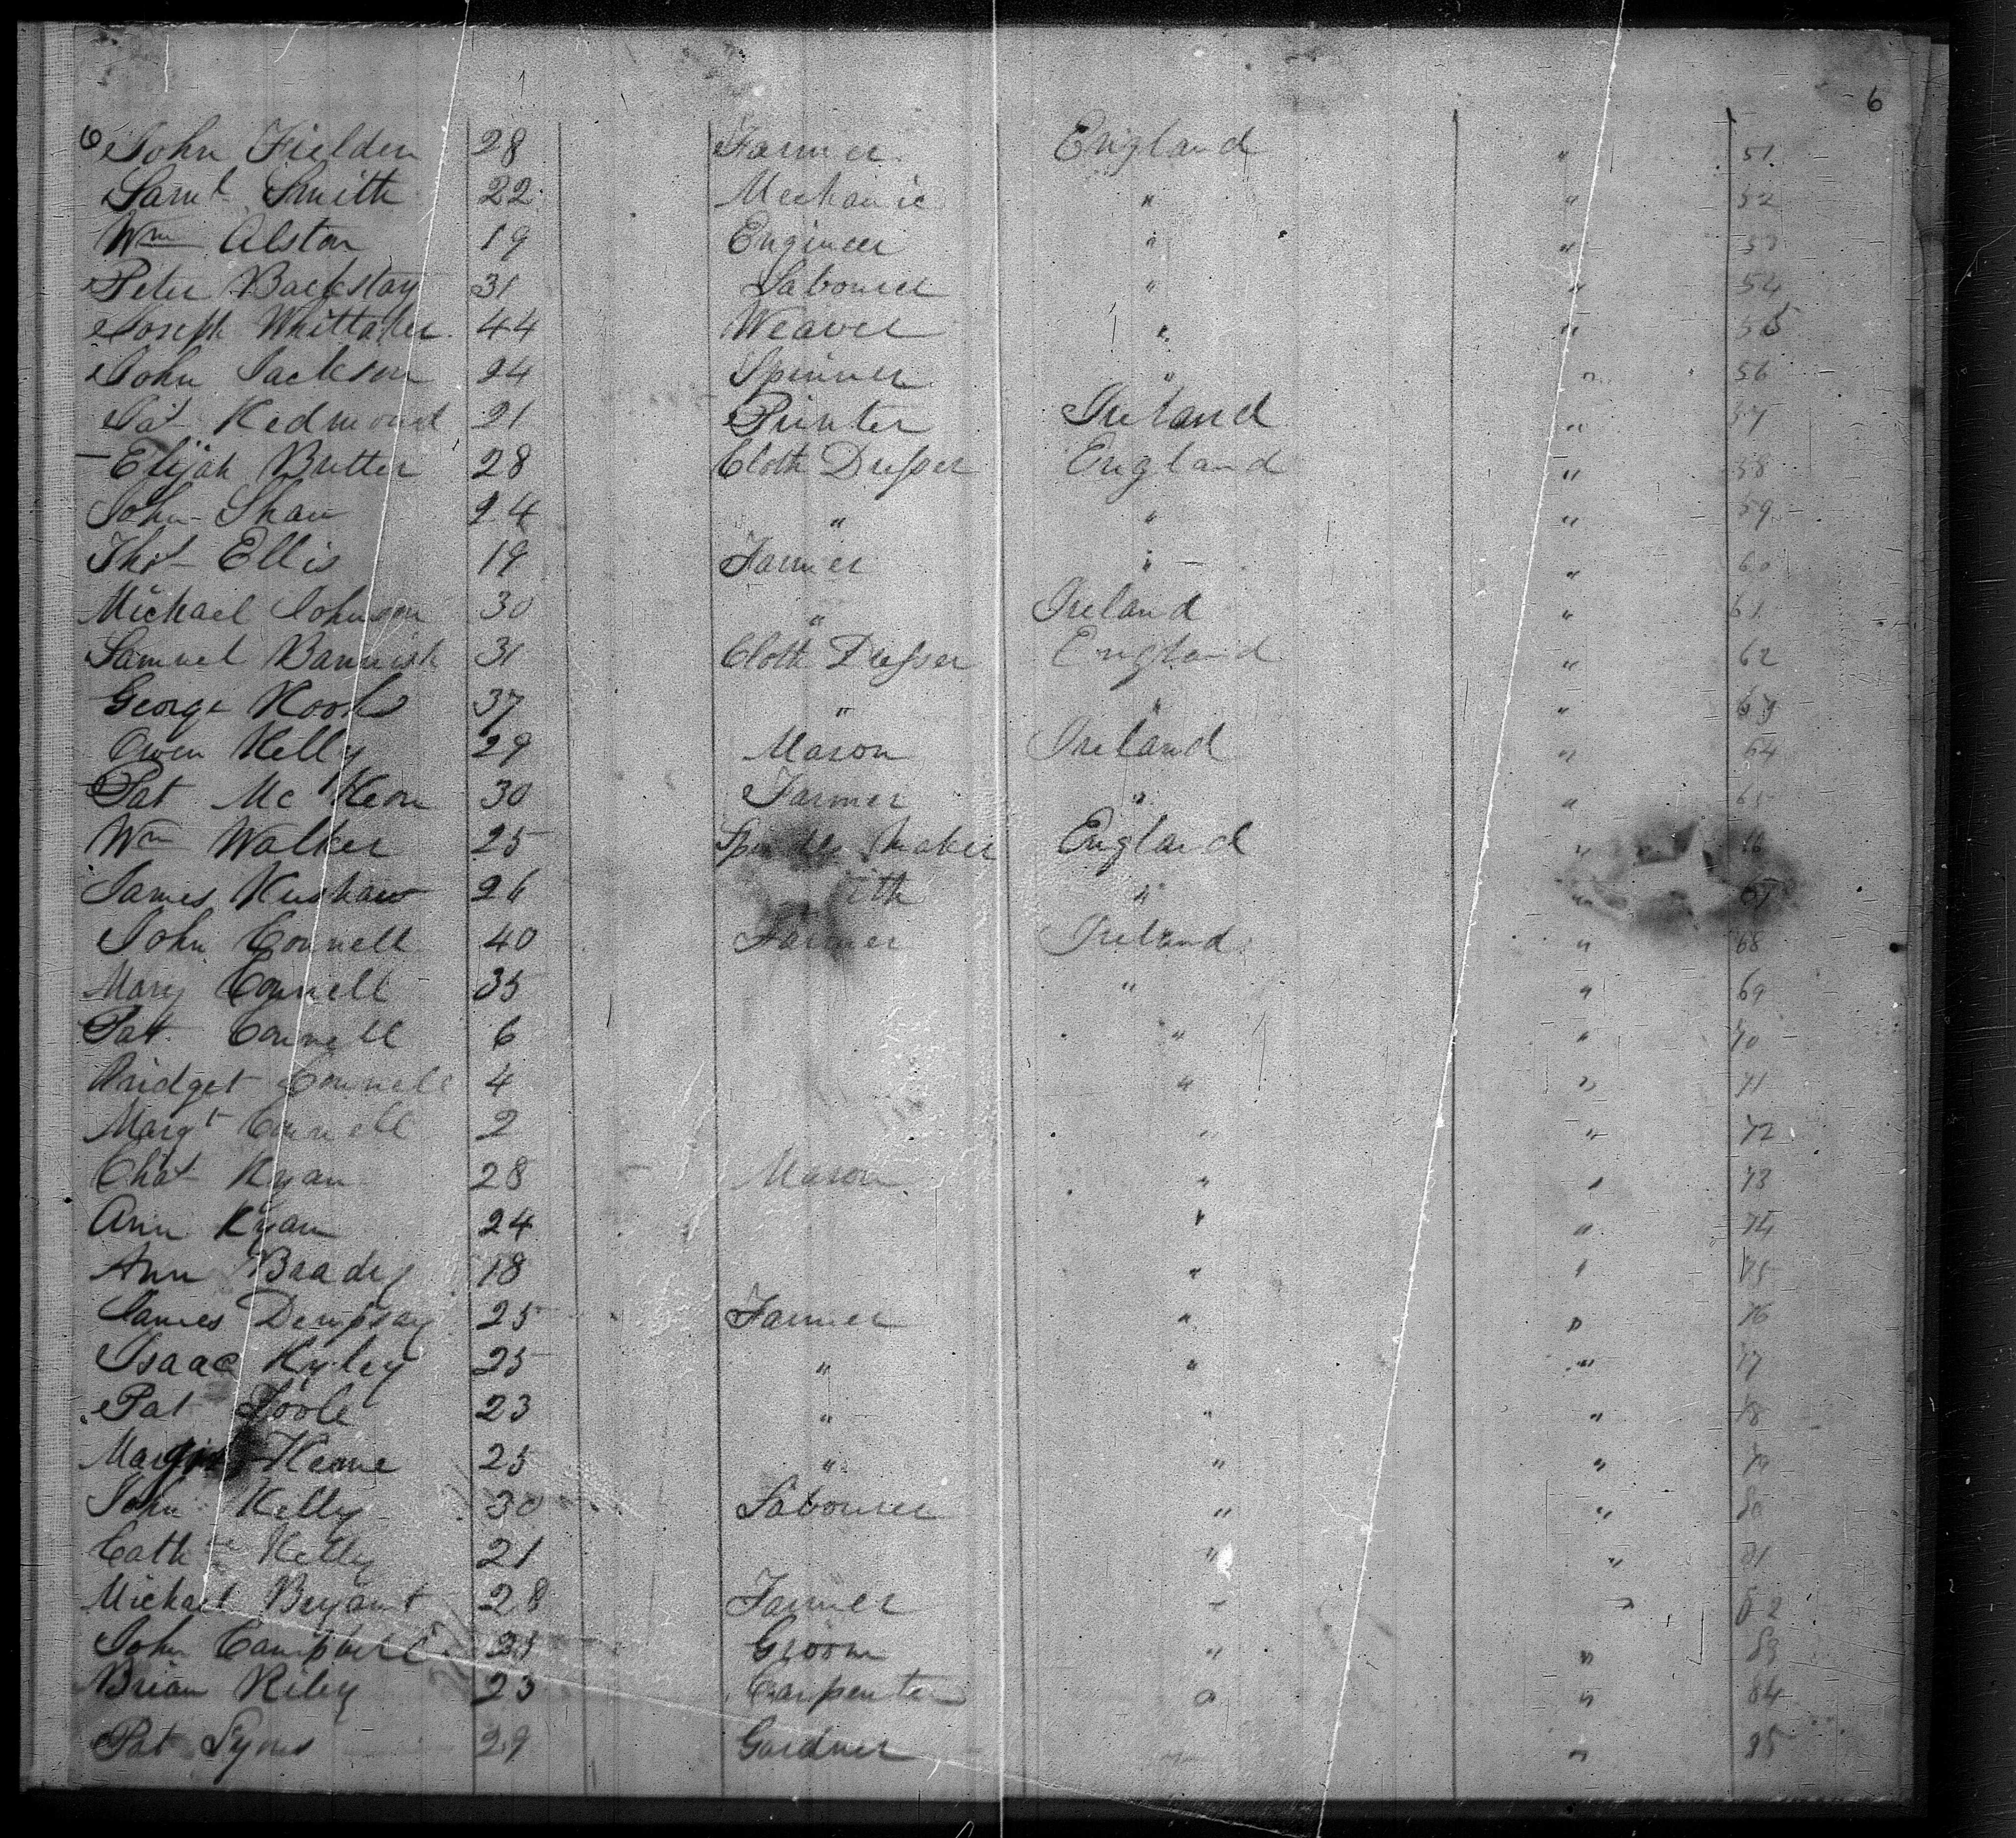 6
6 John Fielden 28 Farmer England " 51
Saml Smith 22 Mechanic " " 52
Wm Alston 19 Engineer " " 53
Peter Backstay 31 Labourer " " 54
Joseph Whittaker 44 Weaver " " 55
John Jackson 24 Spinner " " 56
Pat Redmond 21 Printer Ireland " 57
Elijah Butter 28 Cloth Dresser England " 58
John Shaw 24 " " " 59
Thos Ellis 19 Farmer " " 60
Michael Johnson 30 " Ireland " 61
Samuel 31 Cloth Dresser England " 62
George 37 " " " 63
Owen Kelly 29 Mason Ireland " 64
Pat Mc Keon 30 Farmer " " 65
Wm Walker 25 Spindle Maker England " 66
James 26 " " 67
John Connell 40 Farmer Ireland " 68
Mary Connell 35 " " 69
Pat Connell 6 " " 70
Bridget Connell 4 " " 71
Margt Connell 2 " " 72
Chas Ryan 28 Mason " " 73
Ann Ryan 24 " " 74
Ann Brady 18 " " 75
James Dempsey 25 Farmer " " 76
Isaac Ryley 25 " " " 77
Pat Toole 23 " " " 78
Keane 25 " " " 79
John Kelly 30 Labourer " " 80
Cathne Kelly 21 " " 81
Michael Bryant 28 Farmer " " 82
John Campbell Groom " " 83
Brian Riley 23 Carpenter " " 84
Pat Lyons 29 Gardner " " 85